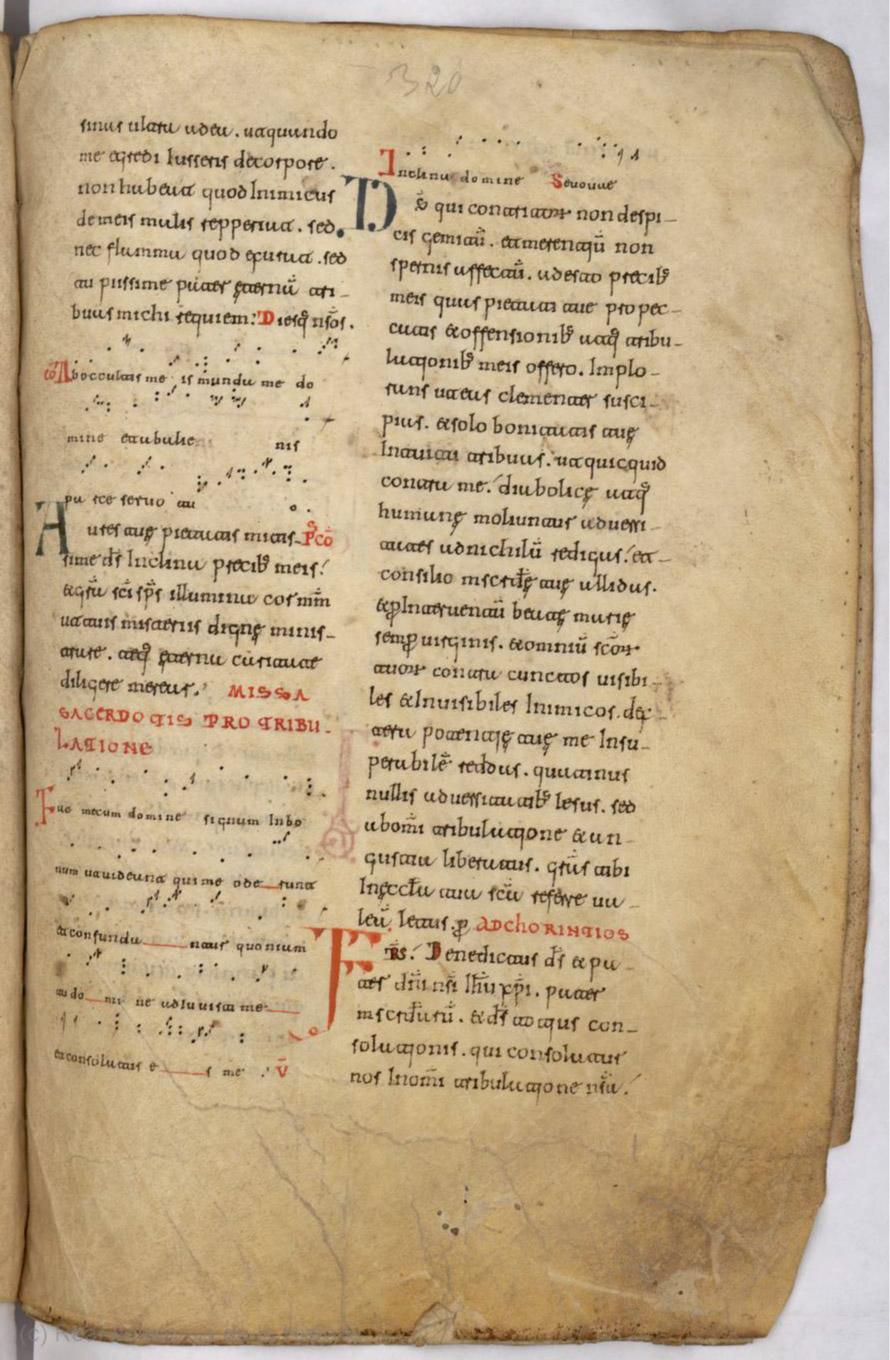 ut quando
me egredi Iusseris de corpore.
non habeat quod Inimicus
de meis malis repperiat. sed
nec flamma quod exurat. sed
tu piissime pater ęternū tri-
buas michi requiem: Diesq; nsōs.
cō Ab occultis meis munda me do
mine et ab alie nis
par ce seruo tu o.
Aures tuę pietatis mitis- Pco
sime ds̄ Inclina precib; meis;
et grā scī sp̄s illumina cor mm̄
ut tuis misteriis dignę minis-
trare. atq; ęterna caritate
diligere merear. MISSA
SACERDOTIS PRO TRIBU-
LATIONE
Fac mecum domine signum In bo
num ut uideant qui me ode runt
et confundan tur quoniam
tu do mi ne adiuuisti me
et consolatus e s me V̄
Inclina domine Seuouae
Ds̄ qui contritorum non despi-
cis gemitū. et merentiū non
spernis affectū. adesto precib;
meis quas pietati tue pro pec-
catis et offensionib; atq; tribu-
lationib; meis offero. Implo-
rans ut eas clementer susci-
pias. et solo bonitatis tuę
Intuitu tribuas. ut quicquid
contra me diabolicę atq;
humanę moliuntur aduersi-
tates ad nichilū redigas. et
consilio mscrdię tuę allidas.
et p Interuentū beatę marię
semp uirginis. et omniū scōr
tuor contra cunctos uisibi-
les et Inuisibiles Inimicos. dex-
tera potentię tuę me Insu-
perabilē reddas. quatinus
nullis aduersitatib; lesus. sed
ab omi tribulatione et an-
gustia liberatus. grās tibi
In ęcclā tua scā referre ua-
leā. lectio AD CHORINTIOS
Frs. Benedictus ds̄ et pa-
ter dnī nsī Ihū xp̄ī. pater
mscrdiarū. et ds̄ totius con-
solationis. qui consolatur
nos In omi tribulatione nsā.
320